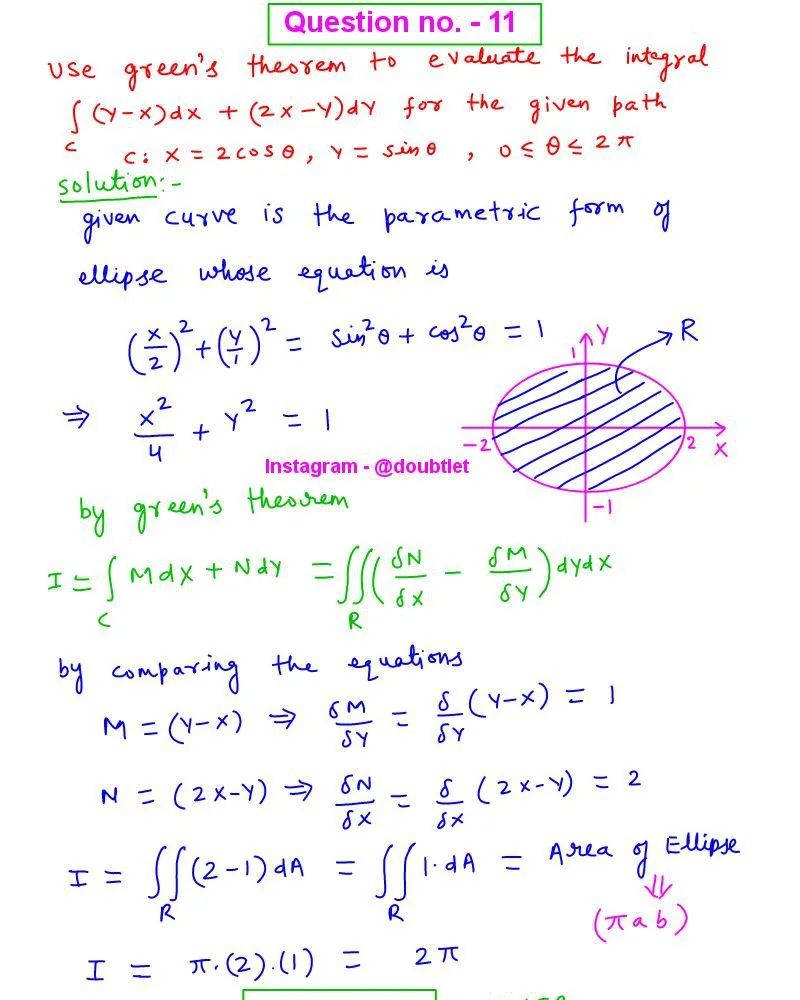 Question no. - 11
Use green's theorem to evaluate the integral
∫_C (y-x)dx + (2x-y)dy for the given path
C: x = 2cosθ, y = sinθ , 0 ≤ θ ≤ 2π
solution:-
given curve is the parametric form of
ellipse whose equation is
(x/2)² + (y/1)² = sin²θ + cos²θ = 1
1 y R
⇒ x²/4 + y² = 1
-2 2 x
Instagram - @doubtlet
-1
by green's theorem
I = ∫_C Mdx + Ndy = ∬_R (δN/δx - δM/δy) dydx
by comparing the equations
M = (y-x) ⇒ δM/δy = δ/δy (y-x) = 1
N = (2x-y) ⇒ δN/δx = δ/δx (2x-y) = 2
I = ∬_R (2-1)dA = ∬_R 1·dA = Area of Ellipse
⇓
(πab)
I = π·(2)·(1) = 2π